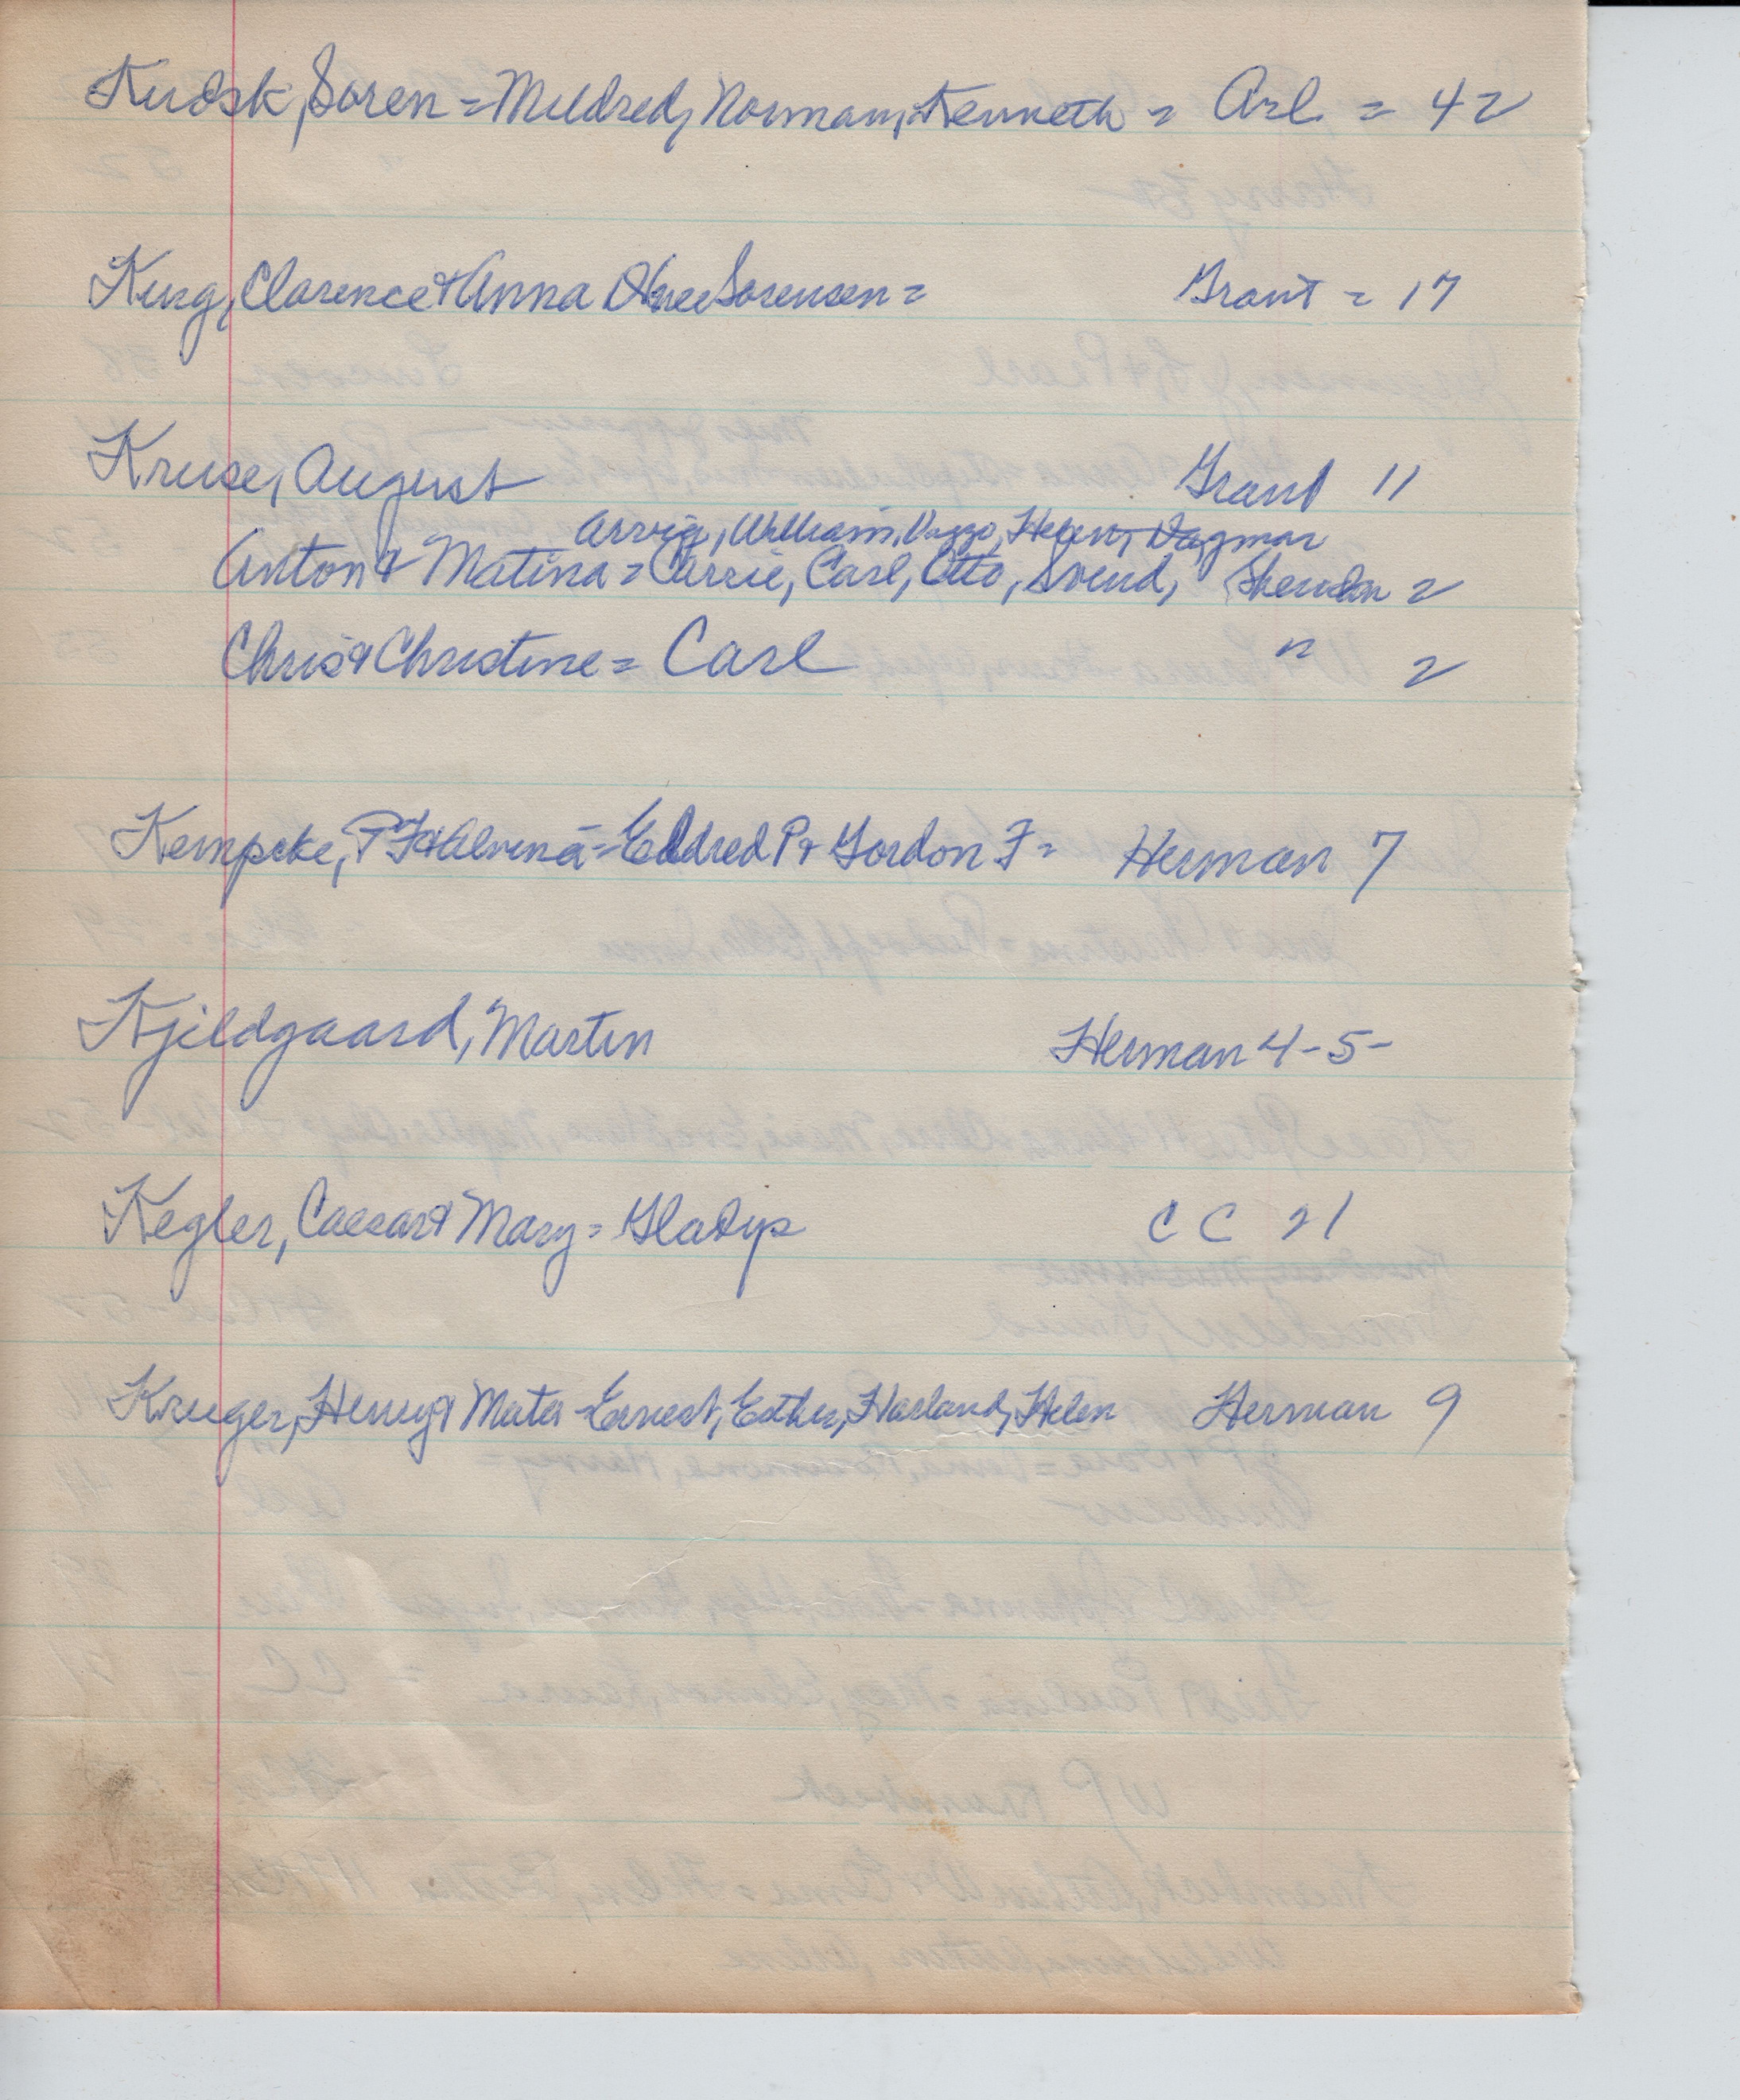 Kudsk, Soren = Mildred, Norman, Kenneth = Arl = 42
King, Clarence & Anna nee Sorensen = Grant = 17
Kruse, August Grant 11
Arvig, William, Viggo, Helen, Dagmar
Anton & Matina = Carrie, Carl, Otto, Svend, Sheridan 2
Chris & Christine = Carl " 2
Kempcke, P F & Alvena - Eldred P & Gordon F = Herman 7
Kjildgaard, Martin Herman 4-5-
Kegler, Caesar & Mary = Gladys CC 21
Kruger, Henry & Meta - Ernest, Esther, Harland, Helen Herman 9